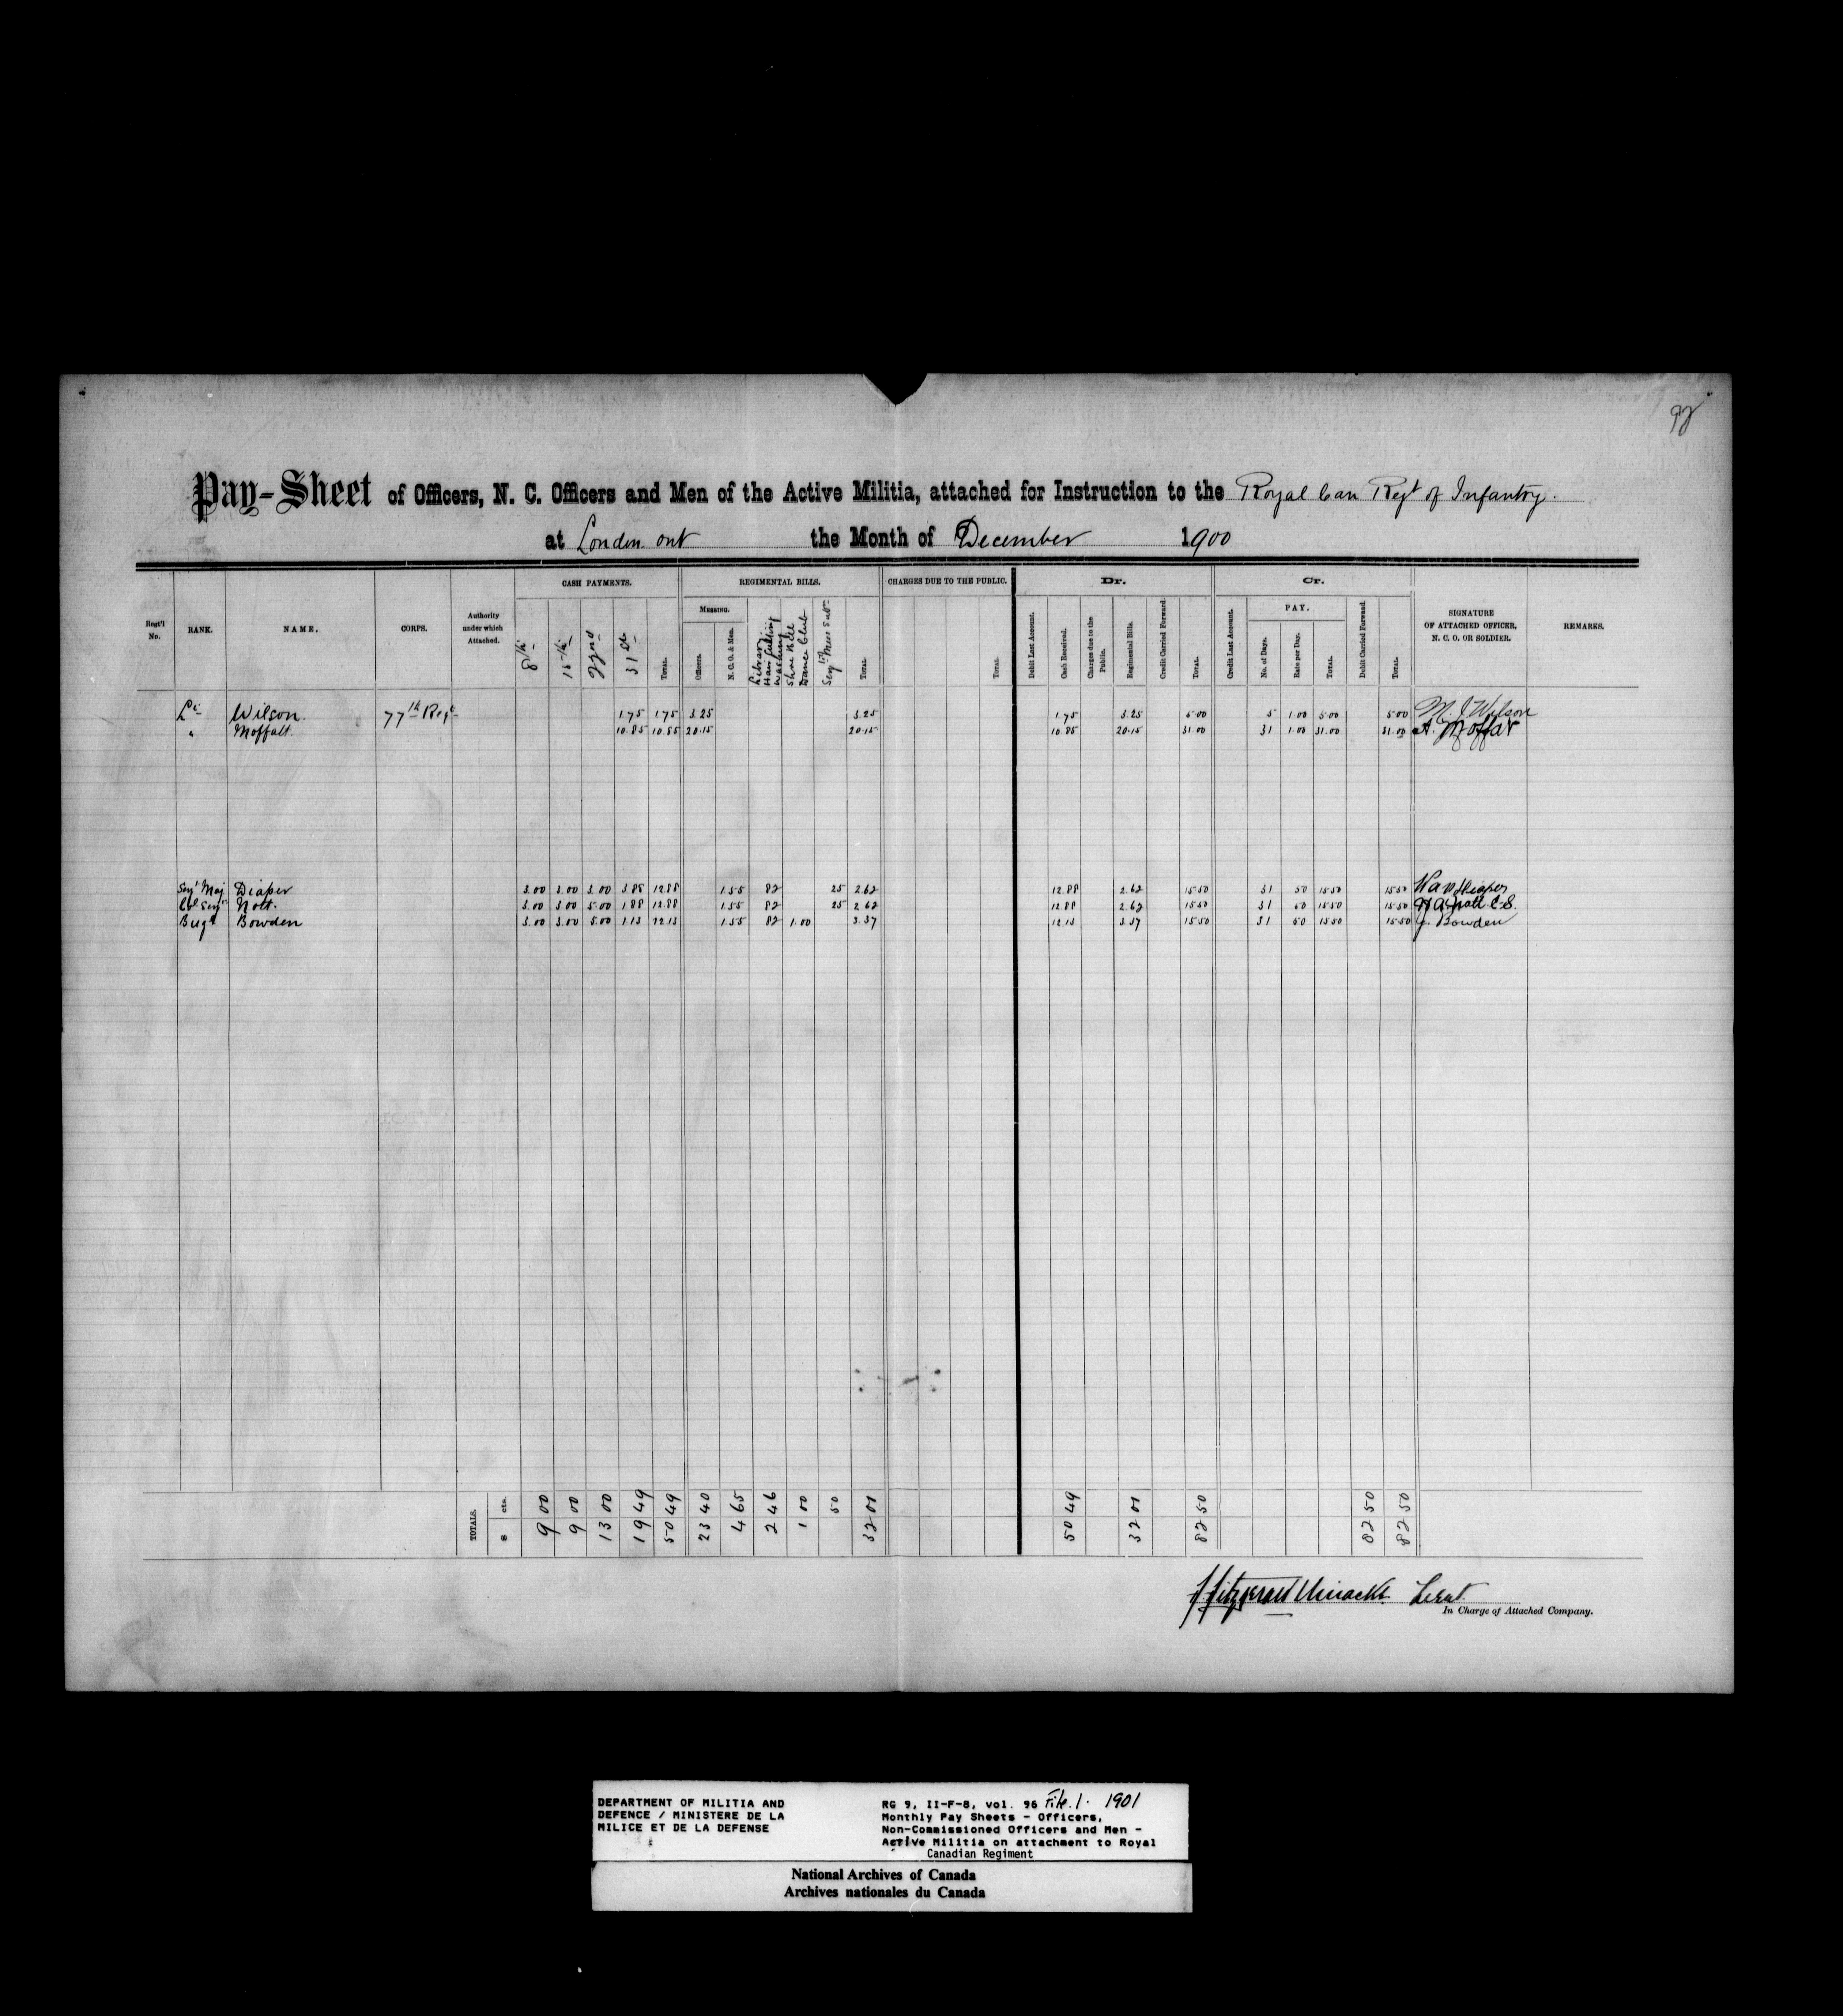 98
Pay-Sheet of Officers, N. C. Officers and Men of the Active Militia, attached for Instruction to the Royal Can Regt of Infantry.
at London. ont the Month of December 1900
CASH PAYMENTS. REGIMENTAL BILLS. CHARGES DUE TO THE PUBLIC. Dr. Cr.
Regt'l No. RANK. NAME. CORPS. Authority under which Attached. 8th 15th 22nd 31st TOTAL. MESSING. Officers. N. C. O. & Men. Library. Hair Cutting Washing Shoe Bill Dance Club Sergts Mess Subn TOTAL. TOTAL. Debit Last Account. Cash Received. Charges due to the Public. Regimental Bills. Credit Carried Forward. TOTAL. Credit Last Account. PAY. No. of Days. Rate per Day. TOTAL. Debit Carried Forward. TOTAL. SIGNATURE OF ATTACHED OFFICER, N. C. O. OR SOLDIER. REMARKS.
Lt Wilson. 77th Regt 1.75 1.75 3.25 3.25 1.75 3.25 5.00 5 1.00 5.00 5.00 M. J. Wilson
" Moffatt. 10.85 10.85 20.15 20.15 10.85 20.15 31.00 31 1.00 31.00 31.00 A. Moffat
Sergt Maj Diaper 3.00 3.00 3.00 3.88 12.88 1.55 82 25 2.62 12.88 2.62 15.50 31 50 15.50 15.50 Diaper
Col Sergt Nott. 3.00 3.00 5.00 1.88 12.88 1.55 82 25 2.62 12.88 2.62 15.50 31 50 15.50 15.50 Nott C.S.
Bugl Bowden 3.00 3.00 5.00 1.13 12.13 1.55 82 1.00 3.37 12.13 3.37 15.50 31 50 15.50 15.50 J. Bowden
TOTALS. $ cts. 9 00 9 00 13 00 19 49 50 49 23 40 4 65 2 46 1 00 50 32 01 50 49 32 01 82 50 82 50 82 50
Fitzgerald Uniacke Lieut.
In Charge of Attached Company.
DEPARTMENT OF MILITIA AND
DEFENCE / MINISTERE DE LA
MILICE ET DE LA DEFENSE
RG 9, II-F-8, vol. 96 File. 1. 1901
Monthly Pay Sheets - Officers,
Non-Commissioned Officers and Men -
Active Militia on attachment to Royal
Canadian Regiment
National Archives of Canada
Archives nationales du Canada